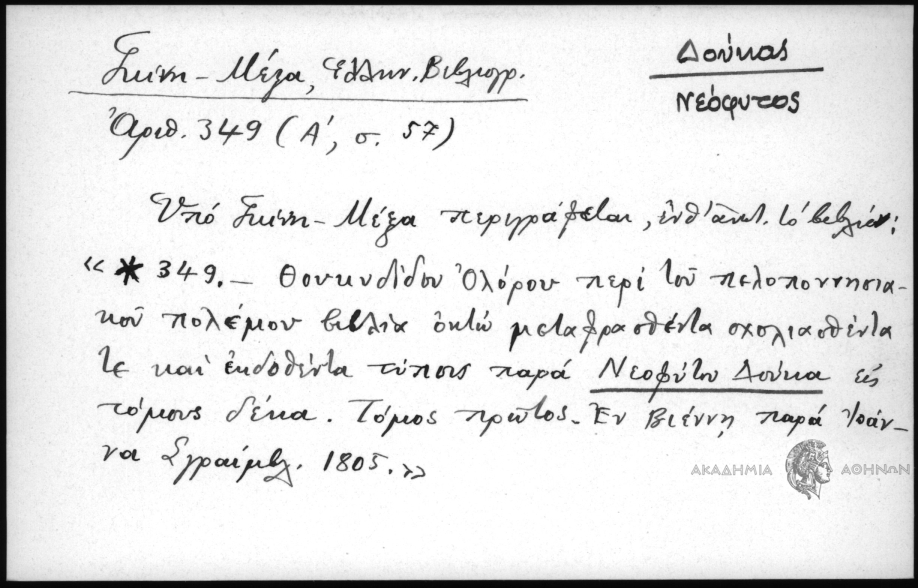 Γκίνη - Μέξα, Ἑλλην. Βιβλιογρ.
Δούκας
Νεόφυτος
Ἀριθ. 349 (Α', σ. 57)
Ὑπό Γκίνη - Μέξα περιγράφεται, ἐνθ' ἀνωτ. τό βιβλίον:
«* 349. — Θουκυδίδου Ὀλόρου περί τοῦ πελοποννησια-
κοῦ πολέμου βιβλία ὀκτώ μεταφρασθέντα σχολιασθέντα
τε καί ἐκδοθέντα τύποις παρά Νεοφύτου Δούκα εἰς
τόμους δέκα. Τόμος πρῶτος. Ἐν Βιέννῃ παρά Ἰωάν-
νᾳ Σγραίμβλ. 1805.»
ΑΚΑΔΗΜΙΑ ΑΘΗΝΩΝ